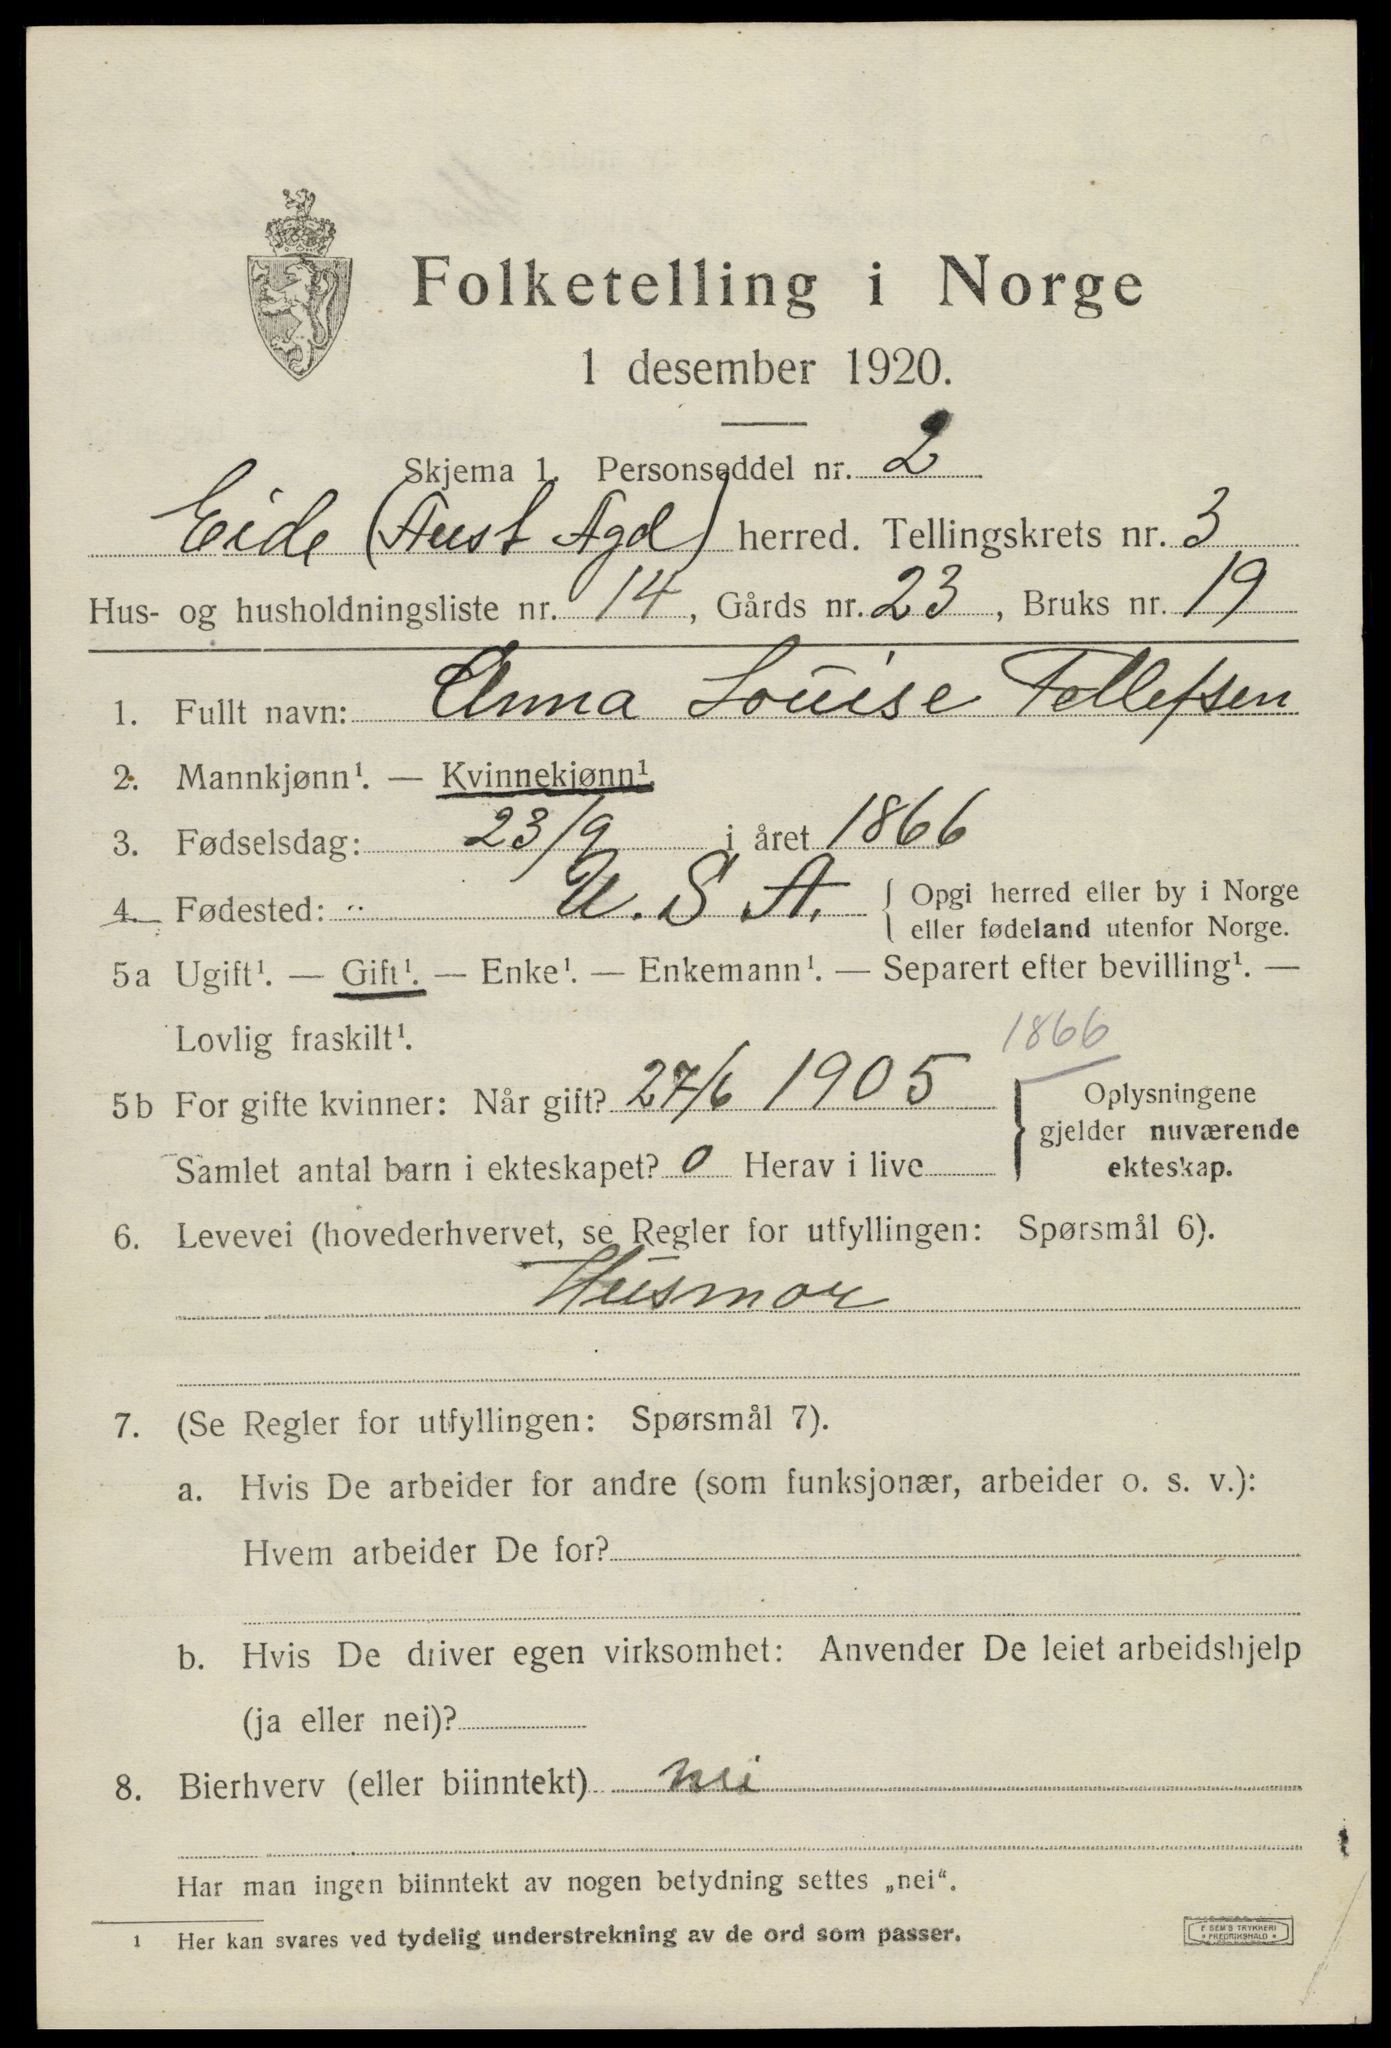 Folketelling i Norge
1 desember 1920.
Skjema 1. Personseddel nr. 2
Eide (Aust Agd) herred. Tellingskrets nr. 3
Hus- og husholdningsliste nr. 14, Gårds nr. 23, Bruks nr. 19
1. Fullt navn: Anna Louise Tellefsen
2. Mannkjønn¹. — Kvinnekjønn¹.
3. Fødselsdag: 23/9 i året 1866
4. Fødested: U. S A. { Opgi herred eller by i Norge
eller fødeland utenfor Norge.
5a Ugift¹. — Gift¹. — Enke¹. — Enkemann¹. — Separert efter bevilling¹. —
Lovlig fraskilt¹.
1866
5b For gifte kvinner: Når gift? 27/6 1905 } Oplysningene
gjelder nuværende
ekteskap.
Samlet antal barn i ekteskapet? 0 Herav i live
6. Levevei (hovederhvervet, se Regler for utfyllingen: Spørsmål 6).
Husmor
7. (Se Regler for utfyllingen: Spørsmål 7).
a. Hvis De arbeider for andre (som funksjonær, arbeider o. s. v.):
Hvem arbeider De for?
b. Hvis De driver egen virksomhet: Anvender De leiet arbeidshjelp
(ja eller nei)?
8. Bierhverv (eller biinntekt) nei
Har man ingen biinntekt av nogen betydning settes „nei“.
¹ Her kan svares ved tydelig understrekning av de ord som passer.
E SEM'S TRYKKERI
* FREDRIKSHALD *